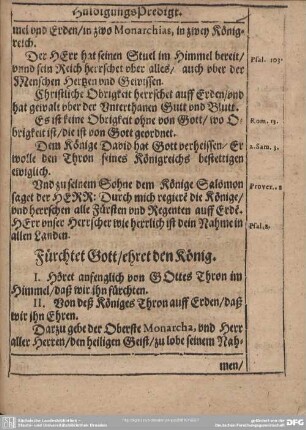 HuldigungsPredigt.
mel vnd Erden/in zwo Monarchias, in zwey König-
reich.
Der HErr hat seinen Stuel im Himmel bereit/ Psal. 103.
vnnd sein Reich herrschet vber alles/ auch vber der
Menschen Hertzen vnd Gewissen.
Christliche Obrigkeit herrschet auff Erden/vnd
hat gewalt vber der Vnterthanen Gutt vnd Blutt.
Es ist keine Obrigkeit ohne von Gott/ wo O- Rom. 13.
brigkeit ist/die ist von Gott geordnet.
Dem Könige David hat Gott verheissen/ Er 2. Sam. 3.
wolle den Thron seines Königreichs bestettigen
ewiglich.
Vnd zu seinem Sohne dem Könige Salomon Prover. 8
saget der HERR: Durch mich regierẽ die Könige/
vnd herrschen alle Fürsten vnd Regenten auff Erdẽ.
HErr vnser Herrscher wie herrlich ist dein Nahme in Psal. 8.
allen Landen.
Fürchtet Gott/ehret den König.
I. Höret anfenglich von GOttes Thron im
Himmel/daß wir ihn fürchten.
II. Von deß Königes Thron auff Erden/daß
wir ihn Ehren.
Darzu gebe der Oberste Monarcha, vnd Herr
aller Herren/den heiligen Geist/ zu lobe seinem Nah-
men/